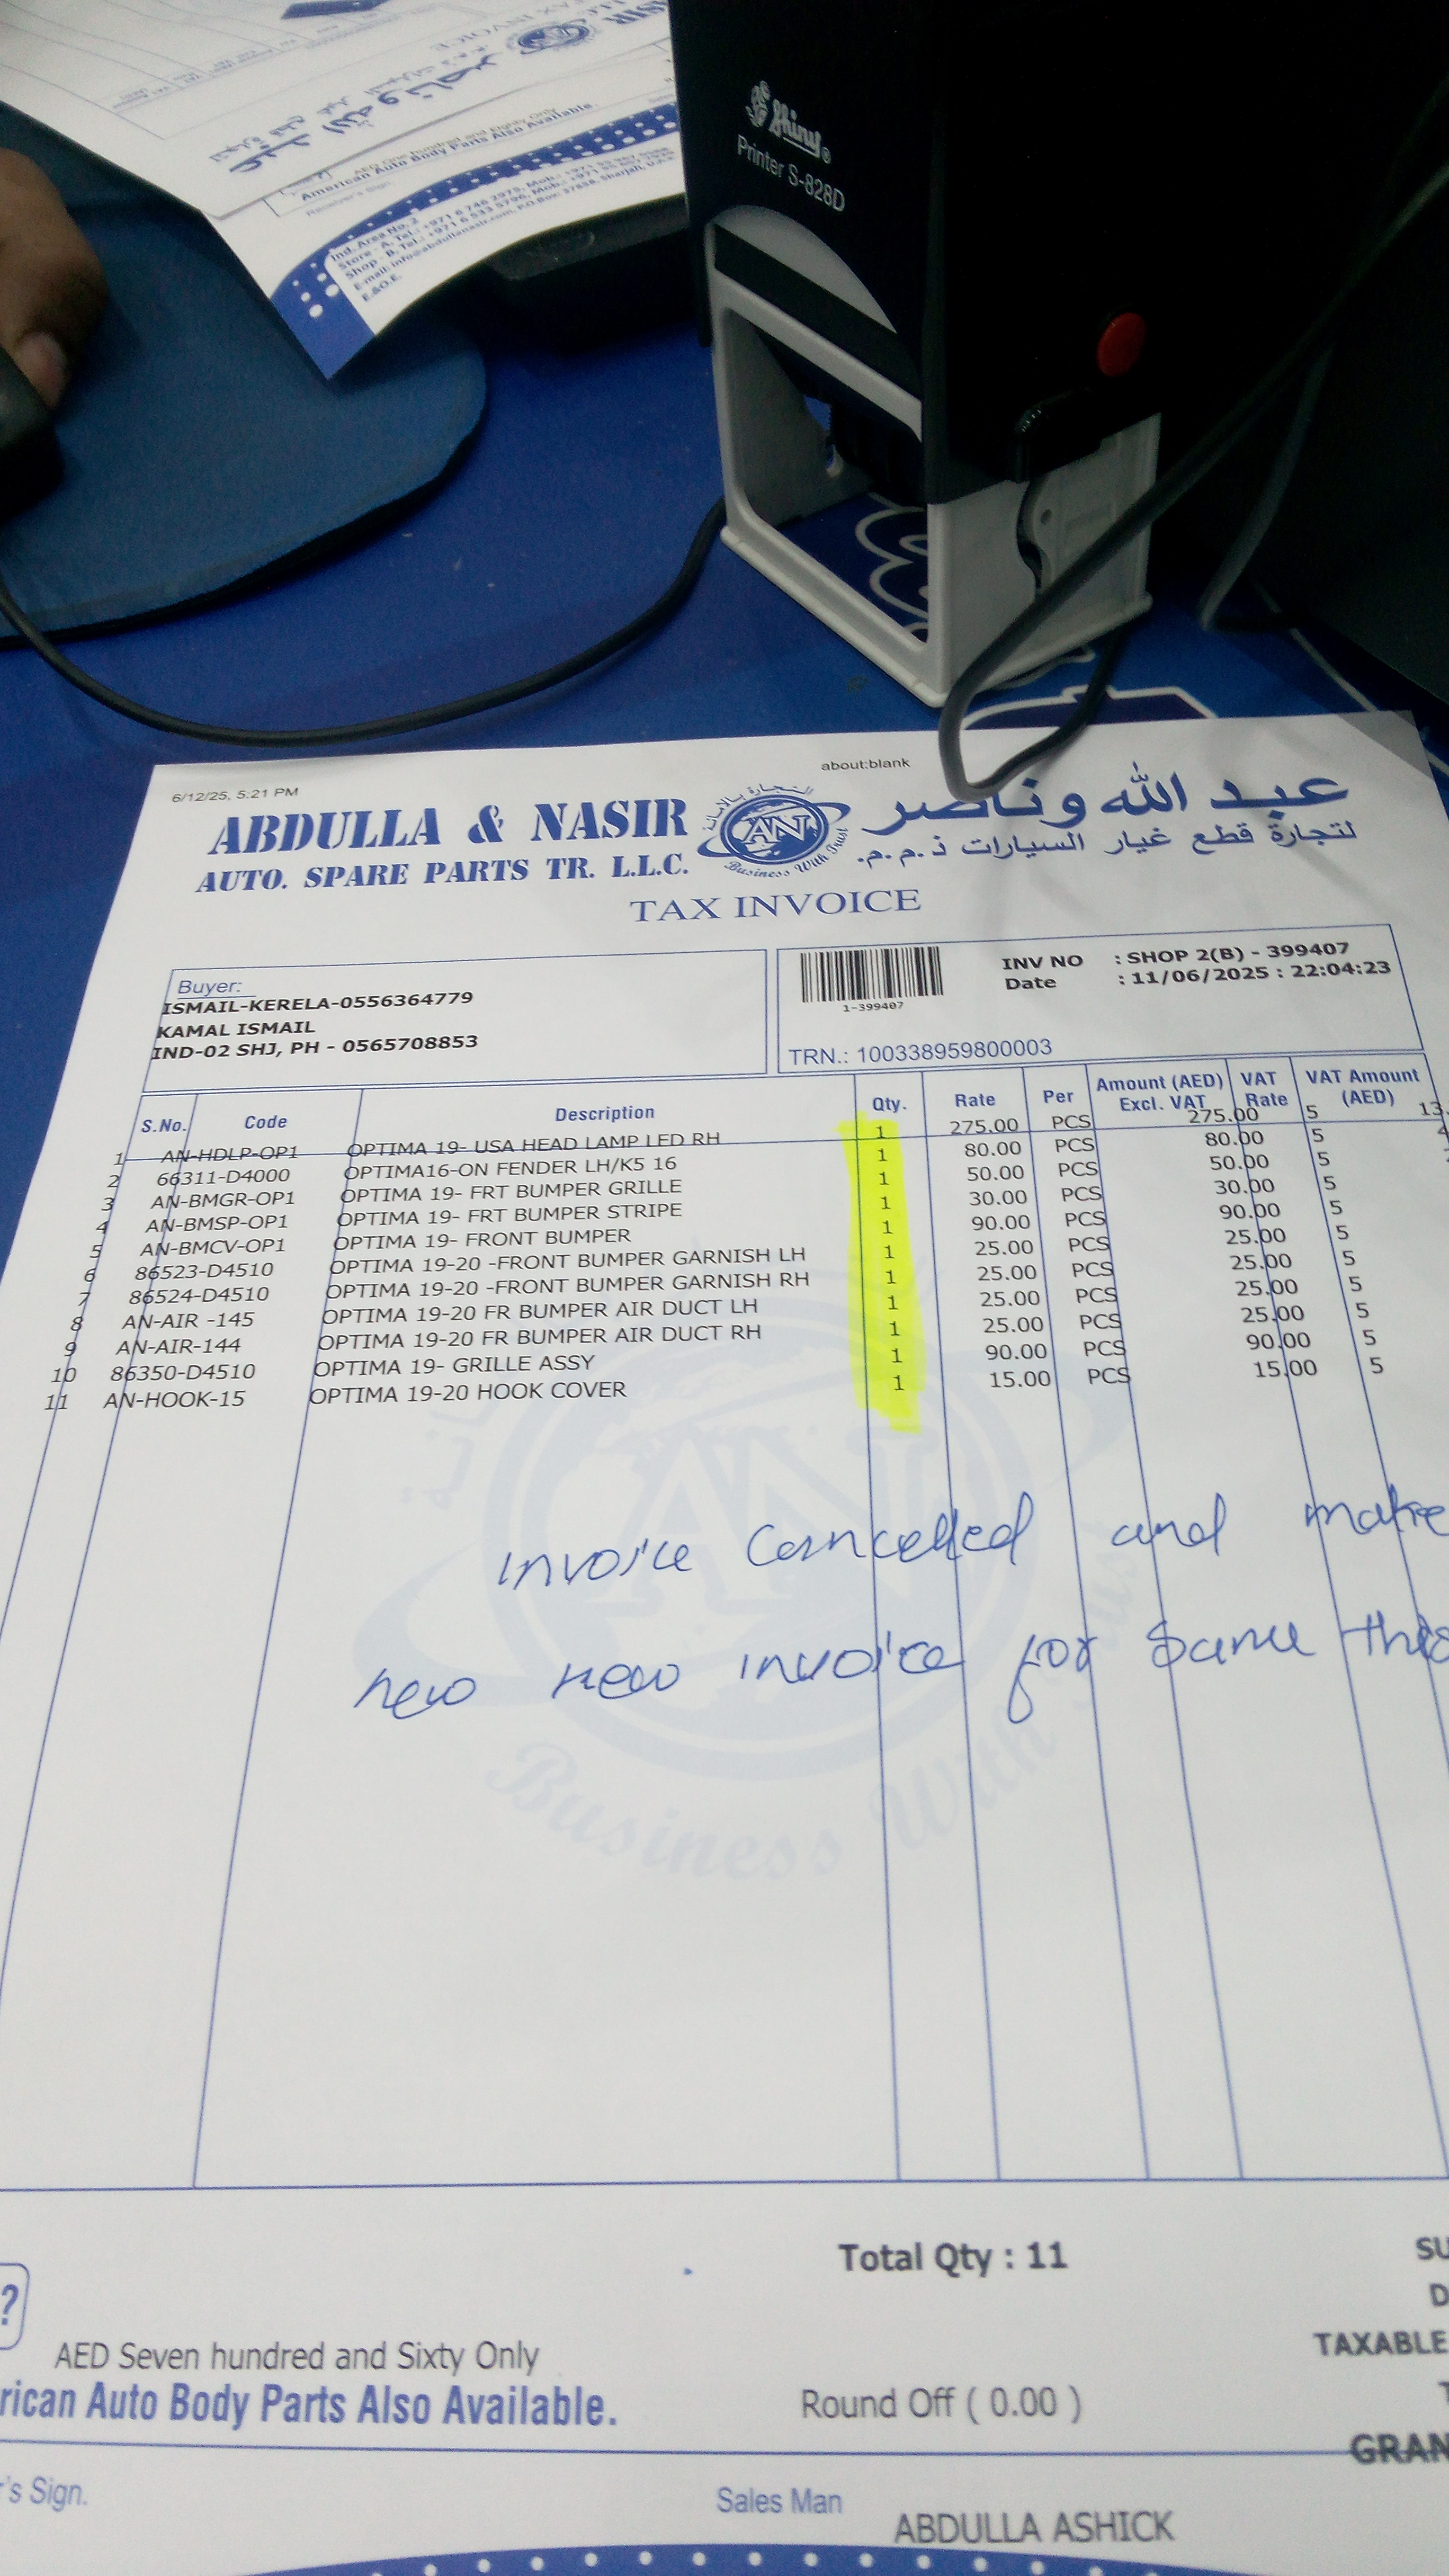 Shiny®
Printer S-828D
AED One hundred and Eighty Only
American Auto Body Parts Also Available.
Receiver's Sign.
Ind. Area No. 2
Store - A, Tel.: +971 6 746 2975, Mob.:
Shop - B, Tel.: +971 6 533 5796, Mob.:
E-mail: info@abdullanasir.com, P.O.Box: 37838, Sharjah, U.A.E
E.&O.E.
6/12/25, 5:21 PM
about:blank
ABDULLA & NASIR
عبد الله وناصر
AUTO. SPARE PARTS TR. L.L.C.
لتجارة قطع غيار السيارات ذ.م.م.
AN
Business With Trust
TAX INVOICE
Buyer:
ISMAIL-KERELA-0556364779
KAMAL ISMAIL
IND-02 SHJ, PH - 0565708853
1-399407
INV NO : SHOP 2(B) - 399407
Date : 11/06/2025 : 22:04:23
TRN.: 100338959800003
S.No. Code Description Qty. Rate Per Amount (AED) Excl. VAT VAT Rate VAT Amount (AED)
1 AN-HDLP-OP1 OPTIMA 19- USA HEAD LAMP LED RH 1 275.00 PCS 275.00 5 13.
2 66311-D4000 OPTIMA16-ON FENDER LH/K5 16 1 80.00 PCS 80.00 5 4
3 AN-BMGR-OP1 OPTIMA 19- FRT BUMPER GRILLE 1 50.00 PCS 50.00 5
4 AN-BMSP-OP1 OPTIMA 19- FRT BUMPER STRIPE 1 30.00 PCS 30.00 5
5 AN-BMCV-OP1 OPTIMA 19- FRONT BUMPER 1 90.00 PCS 90.00 5
6 86523-D4510 OPTIMA 19-20 -FRONT BUMPER GARNISH LH 1 25.00 PCS 25.00 5
7 86524-D4510 OPTIMA 19-20 -FRONT BUMPER GARNISH RH 1 25.00 PCS 25.00 5
8 AN-AIR -145 OPTIMA 19-20 FR BUMPER AIR DUCT LH 1 25.00 PCS 25.00 5
9 AN-AIR-144 OPTIMA 19-20 FR BUMPER AIR DUCT RH 1 25.00 PCS 25.00 5
10 86350-D4510 OPTIMA 19- GRILLE ASSY 1 90.00 PCS 90.00 5
11 AN-HOOK-15 OPTIMA 19-20 HOOK COVER 1 15.00 PCS 15.00 5
invoice Cancelled and make
new new invoice for same this
AN
Business With Trust
Total Qty : 11
SU
D
?
TAXABLE
AED Seven hundred and Sixty Only
rican Auto Body Parts Also Available.
Round Off ( 0.00 )
T
GRAN
r's Sign.
Sales Man
ABDULLA ASHICK